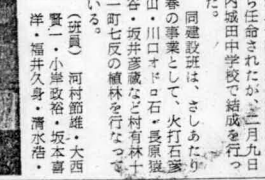 ら任命されたが、二月九日
内城田中学校で結成を行っ
た。
同建設班は、さしあたり
春の事業として、火打石彦
山・川口オドロ石・長原猿
谷・坂井彦蔵など村有林十
一町七反の植林を行なって
いる。
（班員）河村節雄・大西
賢一・小岸政裕・坂本喜
洋・福井久身・清水浩・